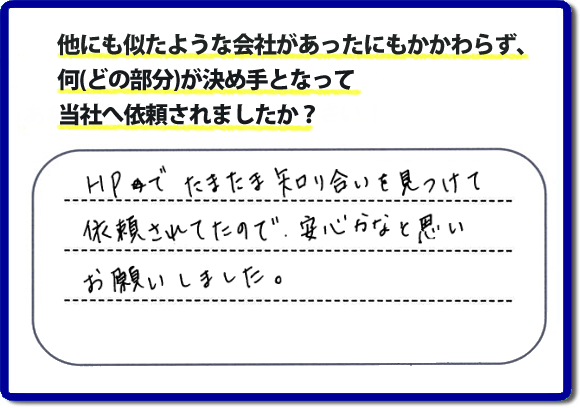 他にも似たような会社があったにもかかわらず、
何(どの部分)が決め手となって
当社へ依頼されましたか？
HPでたまたま知り合いを見つけて
依頼されてたので、安心かなと思い
お願いしました。